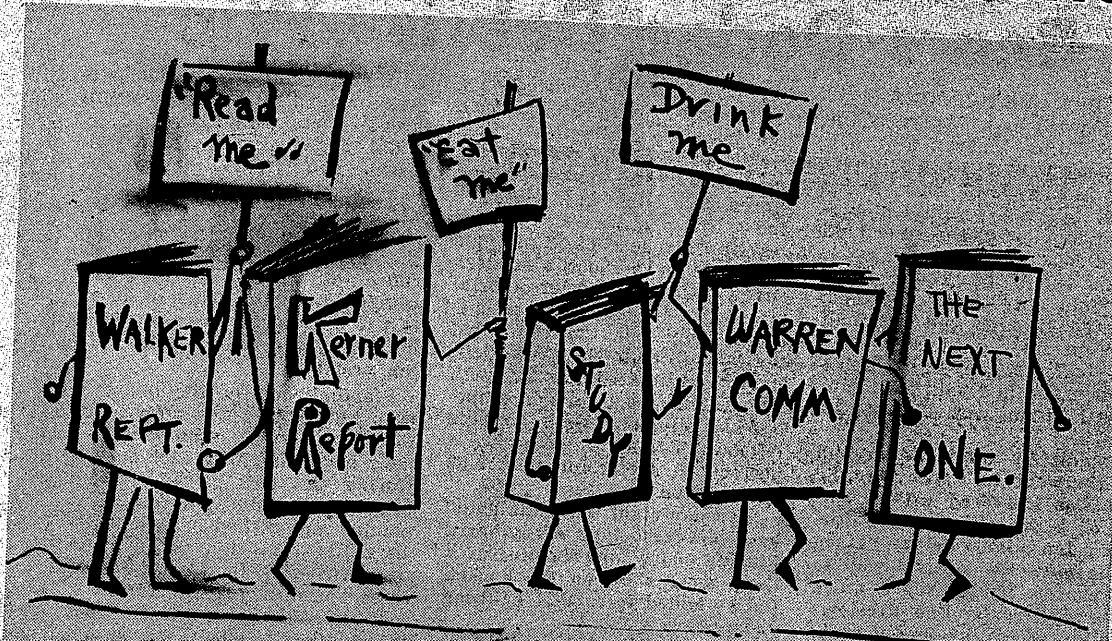 "Read
me"
"eat
me"
Drink
me
WALKER
REPT.
Kerner
Report
STUDY
WARREN
COMM
THE
NEXT
ONE.